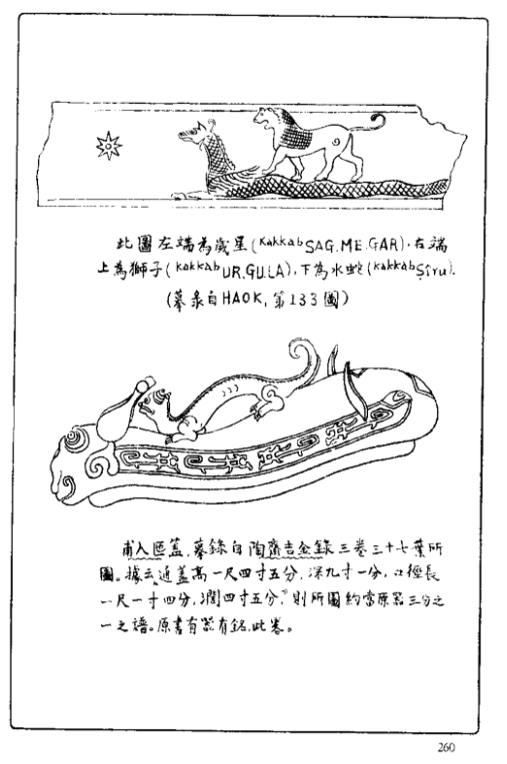 此圖左端為歲星(kakkab SAG.ME.GAR),右端
上為獅子(kakkab UR.GU.LA),下為水蛇(kakkab Ṣiru).
(摹錄自HAOK,第133圖)
甫入匜蓋,摹錄自陶齋吉金錄三卷三十七葉所
圖。據云通蓋高一尺四寸五分,深九寸一分,口徑長
一尺一寸四分,濶四寸五分,則所圖約當原器三分之
一之譜。原書有器有銘,此畧。
260